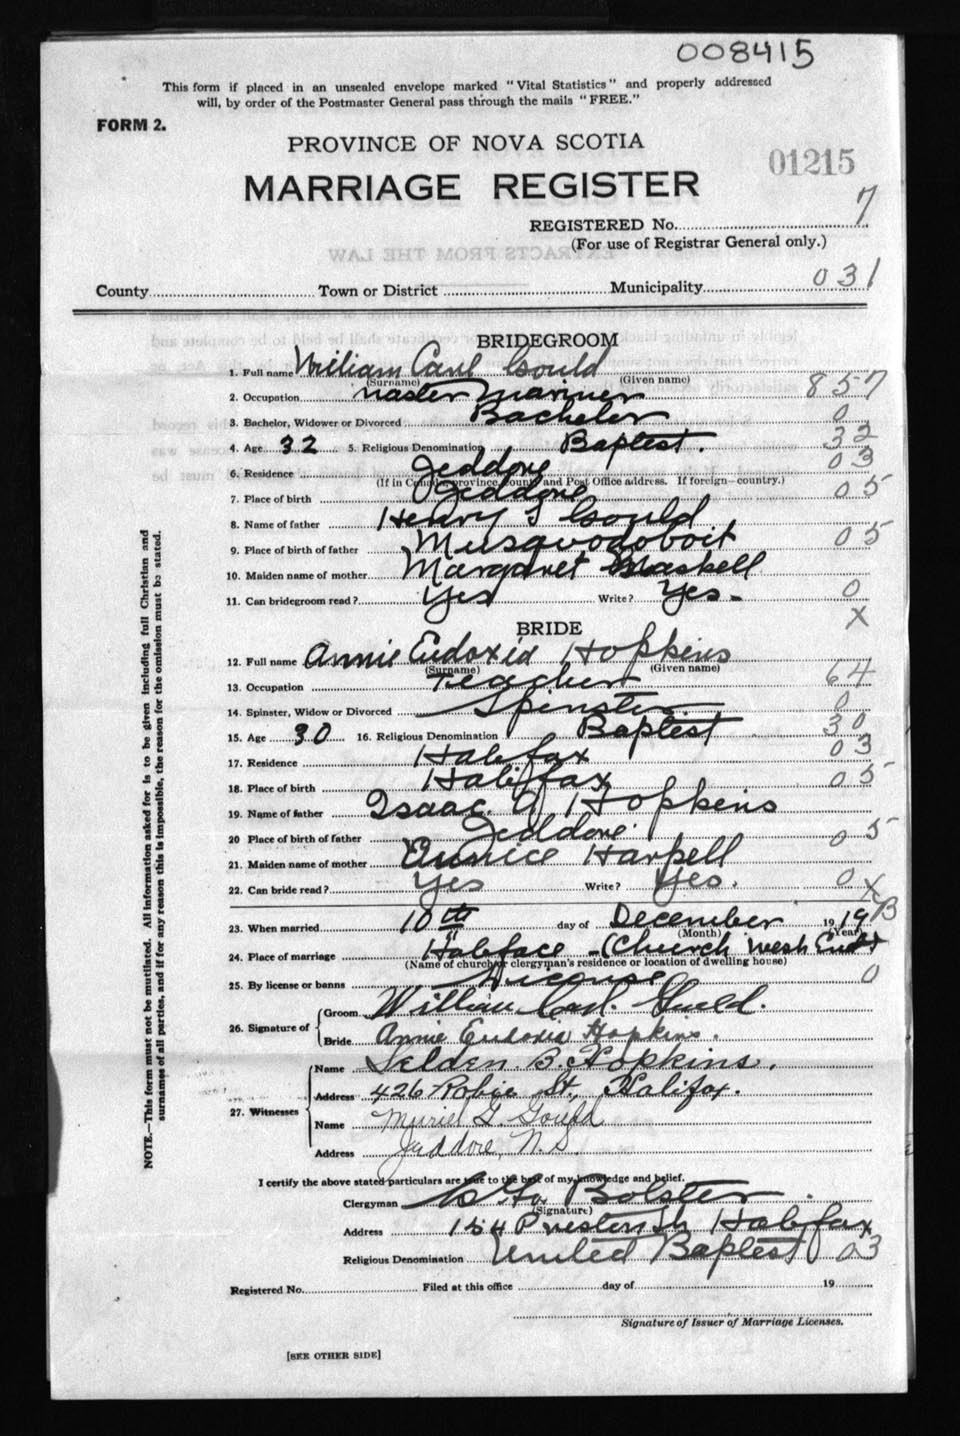 008415
This form if placed in an unsealed envelope marked "Vital Statistics" and properly addressed
will, by order of the Postmaster General pass through the mails "FREE."
FORM 2.
PROVINCE OF NOVA SCOTIA
01215
MARRIAGE REGISTER
REGISTERED No. 7
(For use of Registrar General only.)
County Town or District Municipality 031
BRIDEGROOM
1. Full name William Carl Gould
(Surname) (Given name)
2. Occupation Master Mariner 857
3. Bachelor, Widower or Divorced Bachelor 0
4. Age 32 5. Religious Denomination Baptist. 32
6. Residence Jeddore 03
(If in Canada, province, county and Post Office address. If foreign—country.)
7. Place of birth Jeddore 05
8. Name of father Henry Gould
9. Place of birth of father Musquodoboit 05
10. Maiden name of mother Margaret Blaskell
11. Can bridegroom read? Yes Write? Yes- 0
X
BRIDE
12. Full name Annie Eudoxia Hopkins
(Surname) (Given name)
13. Occupation Teacher 64
14. Spinster, Widow or Divorced Spinster 0
15. Age 30 16. Religious Denomination Baptist 30
17. Residence Halifax 03
18. Place of birth Halifax 05
19. Name of father Isaac. A. Hopkins
20 Place of birth of father Jeddore. 05
21. Maiden name of mother Eunice Harpell
22. Can bride read? Yes Write? Yes. 0 X
23. When married 10th day of December 19 19 B
(Month) (Year)
24. Place of marriage Halifax - (Church West End)
(Name of church or clergyman's residence or location of dwelling house)
25. By license or banns License 0
26. Signature of Groom William Carl Gould.
Bride Annie Eudoxia Hopkins.
27. Witnesses Name Selden B. Hopkins.
Address 426 Robie St, Halifax.
Name Muriel G. Gould
Address Jeddore, N.S.
I certify the above stated particulars are true to the best of my knowledge and belief.
Clergyman Bolster
(Signature)
Address 154 Preston St Halifax
Religious Denomination United Baptist 03
Registered No. Filed at this office day of 19
Signature of Issuer of Marriage Licenses.
[SEE OTHER SIDE]
NOTE.—This form must not be mutilated. All information asked for is to be given including full Christian and
surnames of all parties, and if for any reason this is impossible, the reason for the omission must be stated.